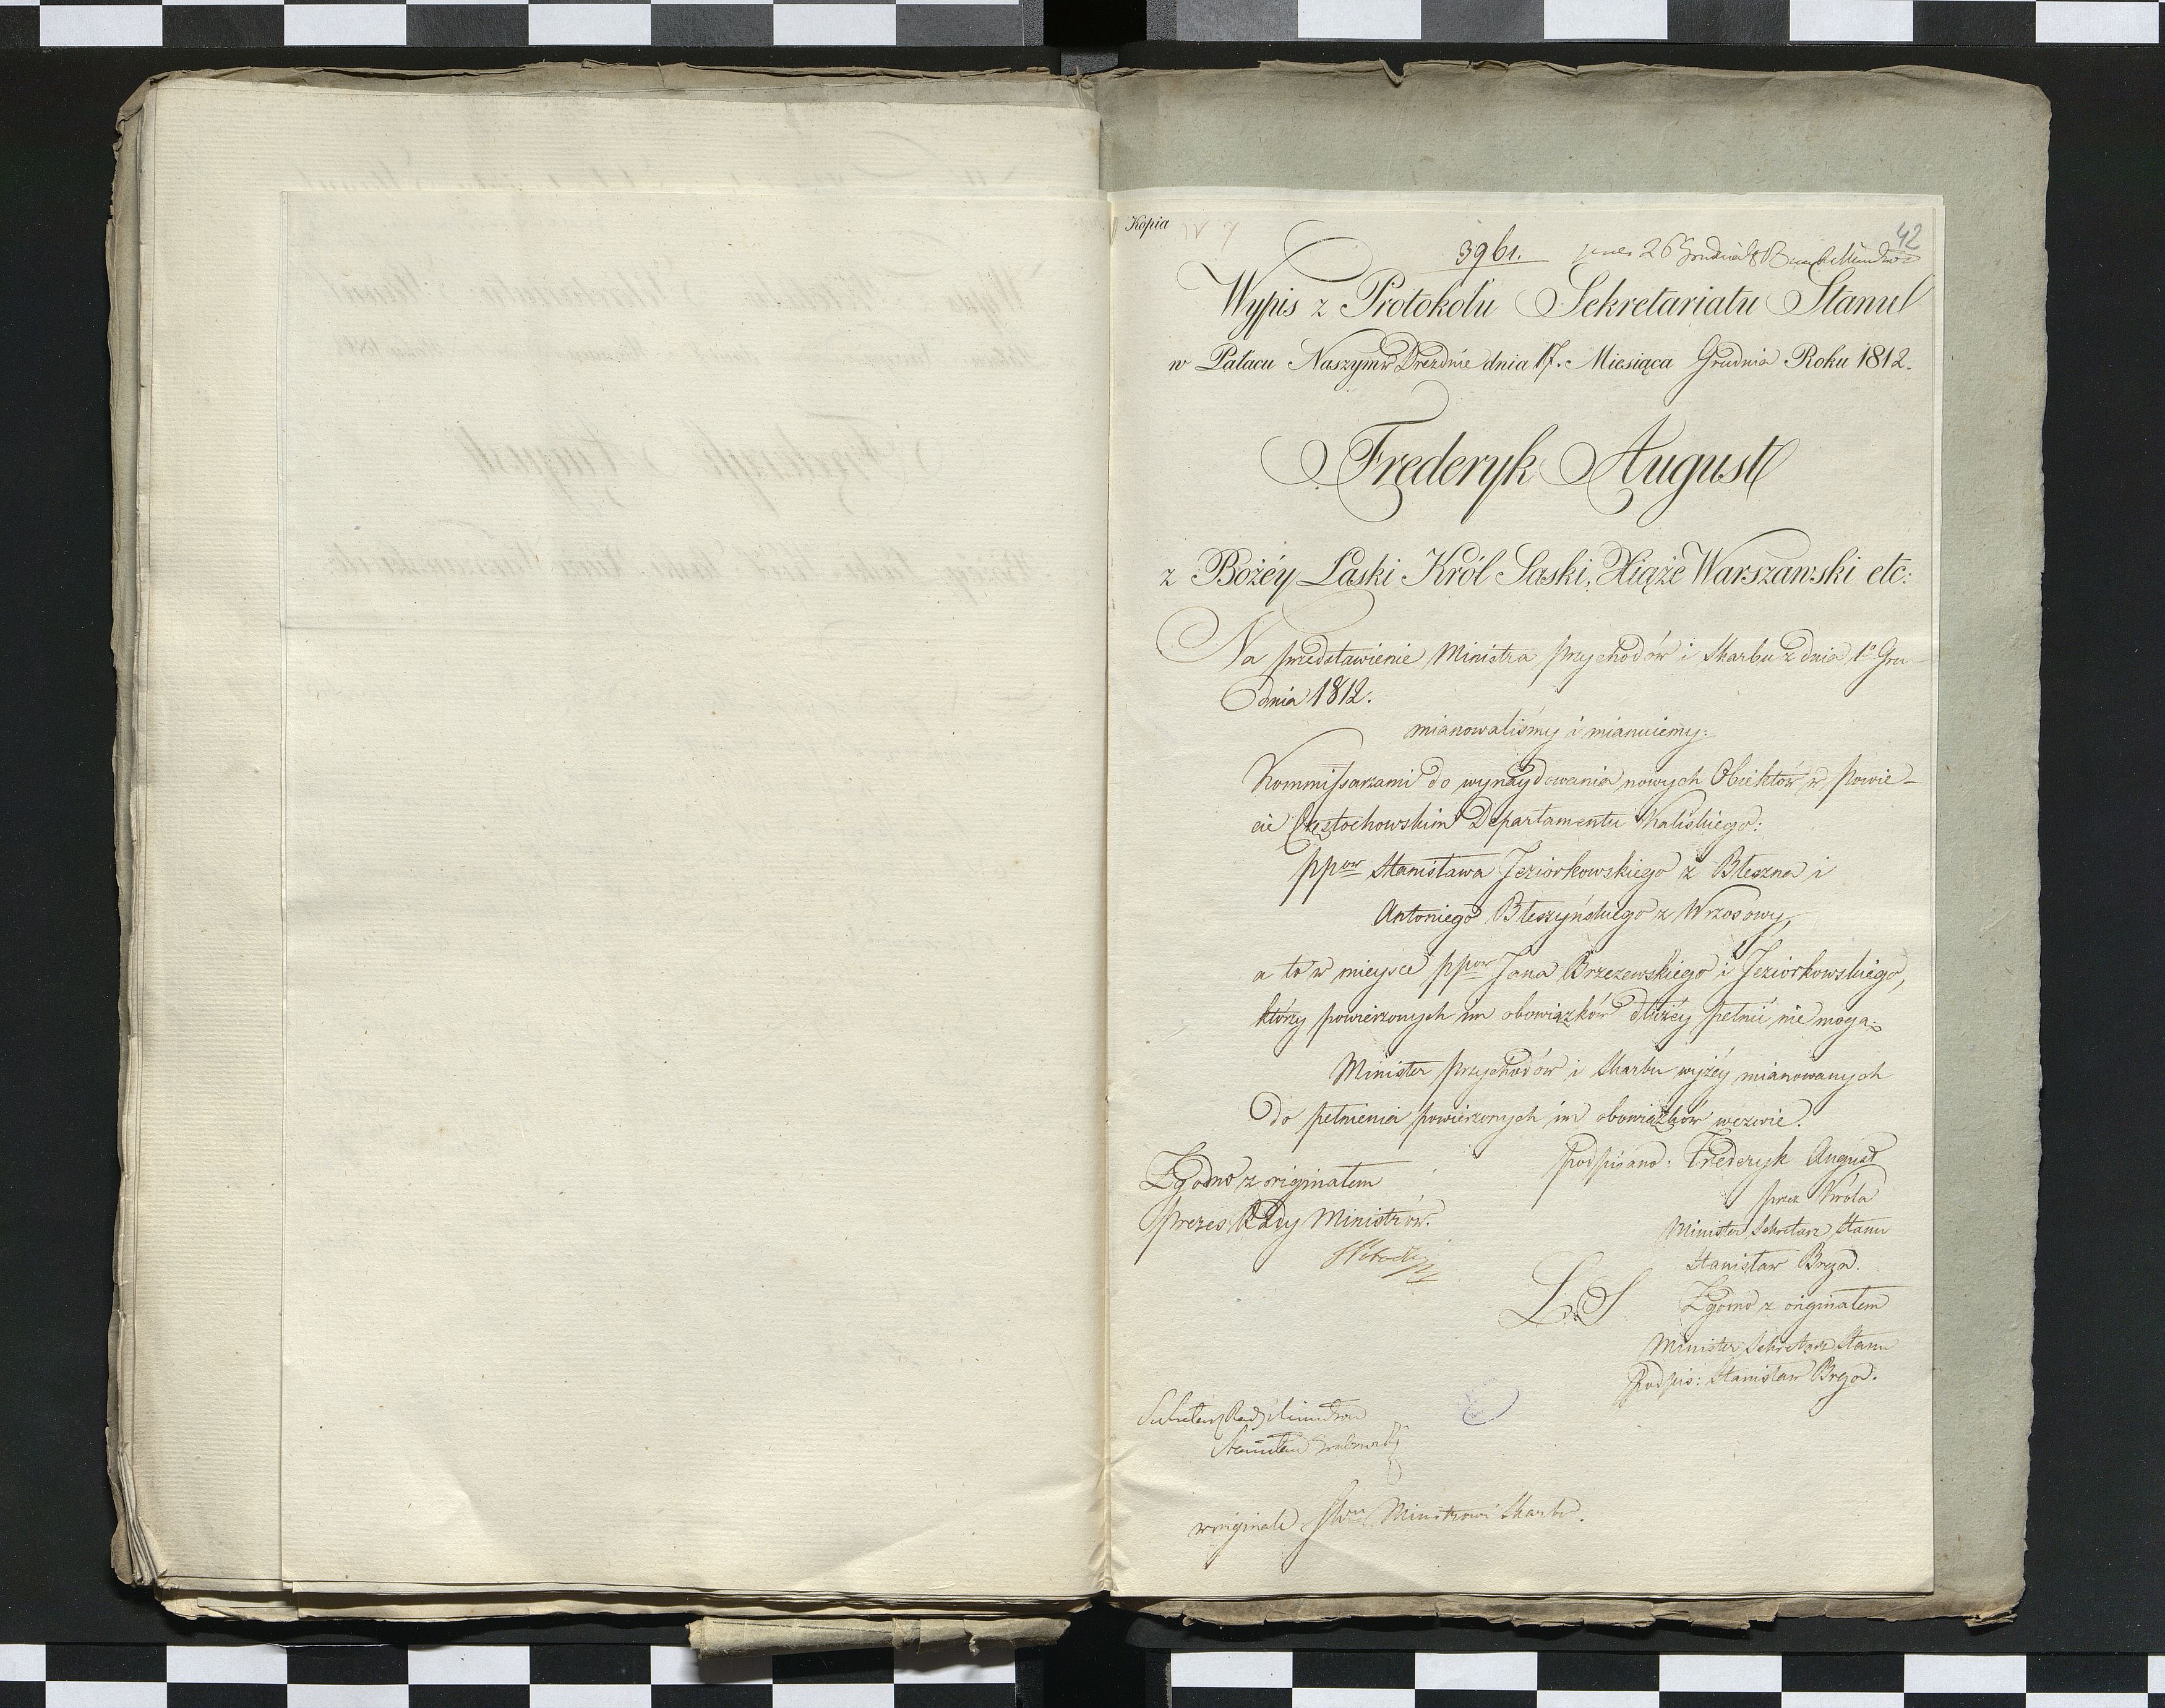 Kopia
42
3961. 26 Grudnia
Wypis z Protokołu Sekretariatu Stanu
w Pałacu Naszym w Dreźnie dnia 17. Miesiąca Grudnia Roku 1812.
Frederyk August
z Bożéy Łaski Król Saski, Xiąże Warszawski etc:
Na przedstawienie Ministra przychodów i Skarbu z dnia 1º Gru-
dnia 1812.
mianowaliśmy i mianuiemy:
Kommissarzami do wynaydowania nowych Obiektów w Powie-
cie Częstochowskim Departamentu Kaliskiego:
ppow Stanisława Jeziorkowskiego z Błeszna i
Antoniego Błeszyńskiego z Wrzosowy,
a to w mieysce ppow Jana Brzezewskiego i Jeziorkowskiego,
którzy powierzonych im obowiązków dłużéy pełnić nie mogą.
Minister przychodów i Skarbu wyżéy mianowanych
do pełnienia powierzonych im obowiązków wezwie.
Podpisano: Frederyk August
przez Króla
Minister Sekretarz Stanu
Stanisław Breza.
Zgodno z originałem
Prezes Rady Ministrów.
L. S.
Zgodno z originałem
Minister Sekretarz Stanu
Podpis: Stanisław Breza.
Sekretarz Rady Ministrów
Stanisław Grabowski
w originale JWu Ministrowi Skarbu.